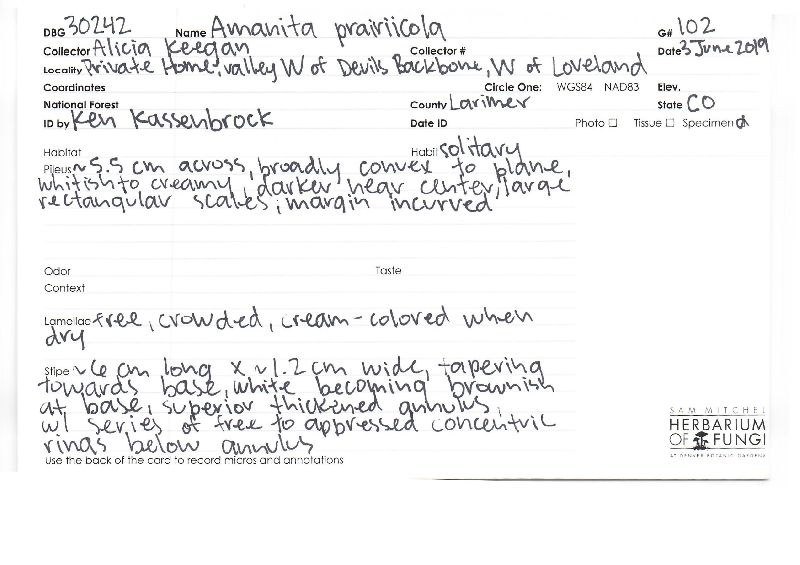 DBG 30242 Name Amanita prairiicola G# 102
Collector Alicia Keegan Collector # Date 3 June 2019
Locality Private Home, valley W of Devils Backbone, W of Loveland
Coordinates Circle One: WGS84 NAD83 Elev.
National Forest County Larimer State CO
ID by Ken Kassenbrock Date ID Photo ☐ Tissue ☐ Specimen ☑
Habitat Habit solitary
Pileus ~5.5 cm across, broadly convex to plane,
whitish to creamy, darker near center, large
rectangular scales, margin incurved
Odor Taste
Context
Lamellae free, crowded, cream-colored when
dry
Stipe ~6 cm long x ~1.2 cm wide, tapering
towards base, white becoming brownish
at base, superior thickened annulus,
w/ series of free to appressed concentric
rings below annulus
Use the back of the card to record micros and annotations
SAM MITCHEL
HERBARIUM
OF FUNGI
AT DENVER BOTANIC GARDENS